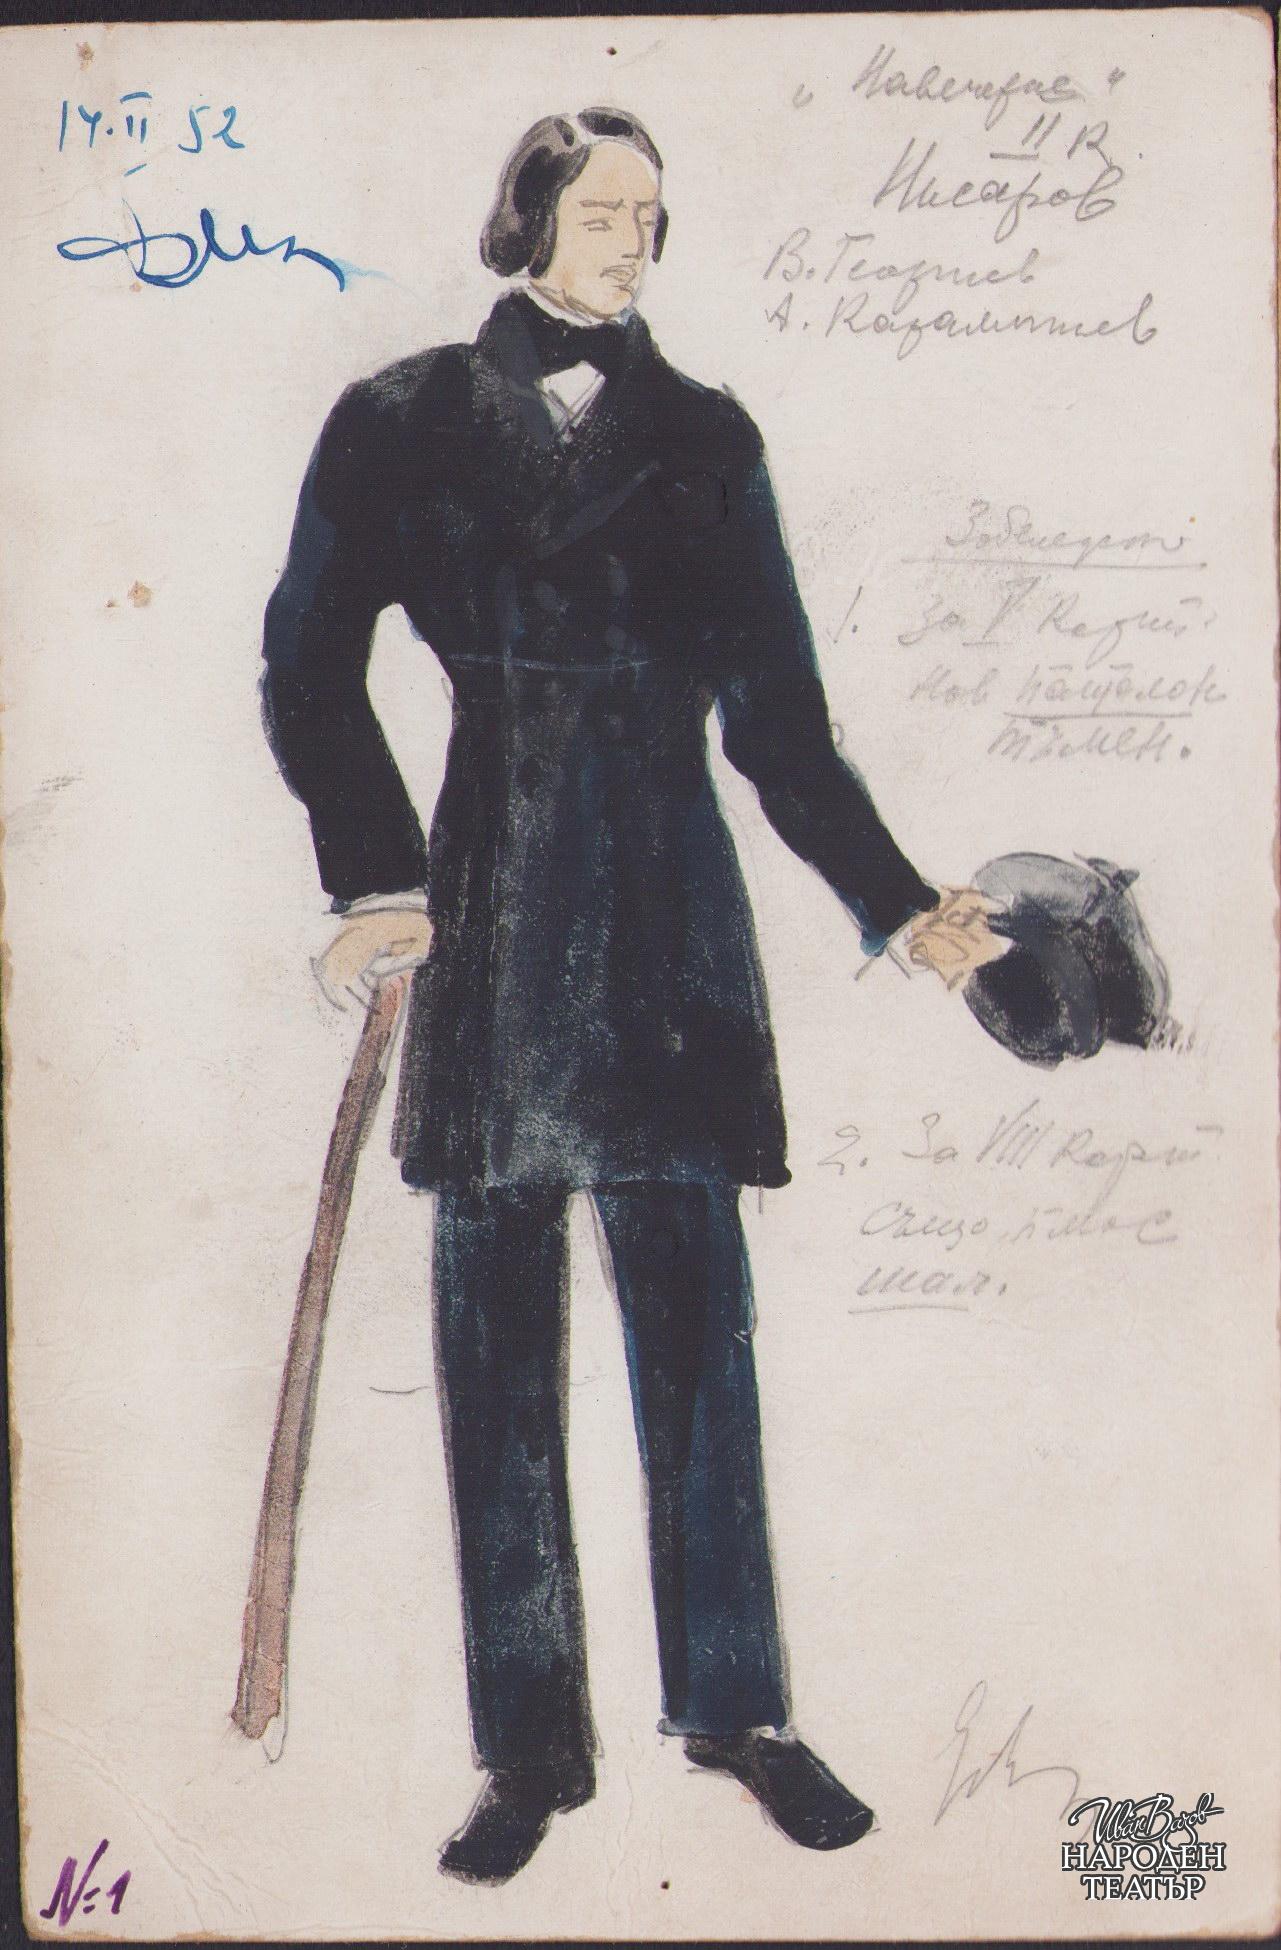 14.II 52
„Навечерие“
II к.
Инсаров
В. Георгиев
А. Карамитев
Забележки
1. За V карт.
нов панталон
тъмен.
2. За VIII карт.
също, плюс
шал.
№ 1
Иван Вазов
НАРОДЕН
ТЕАТЪР